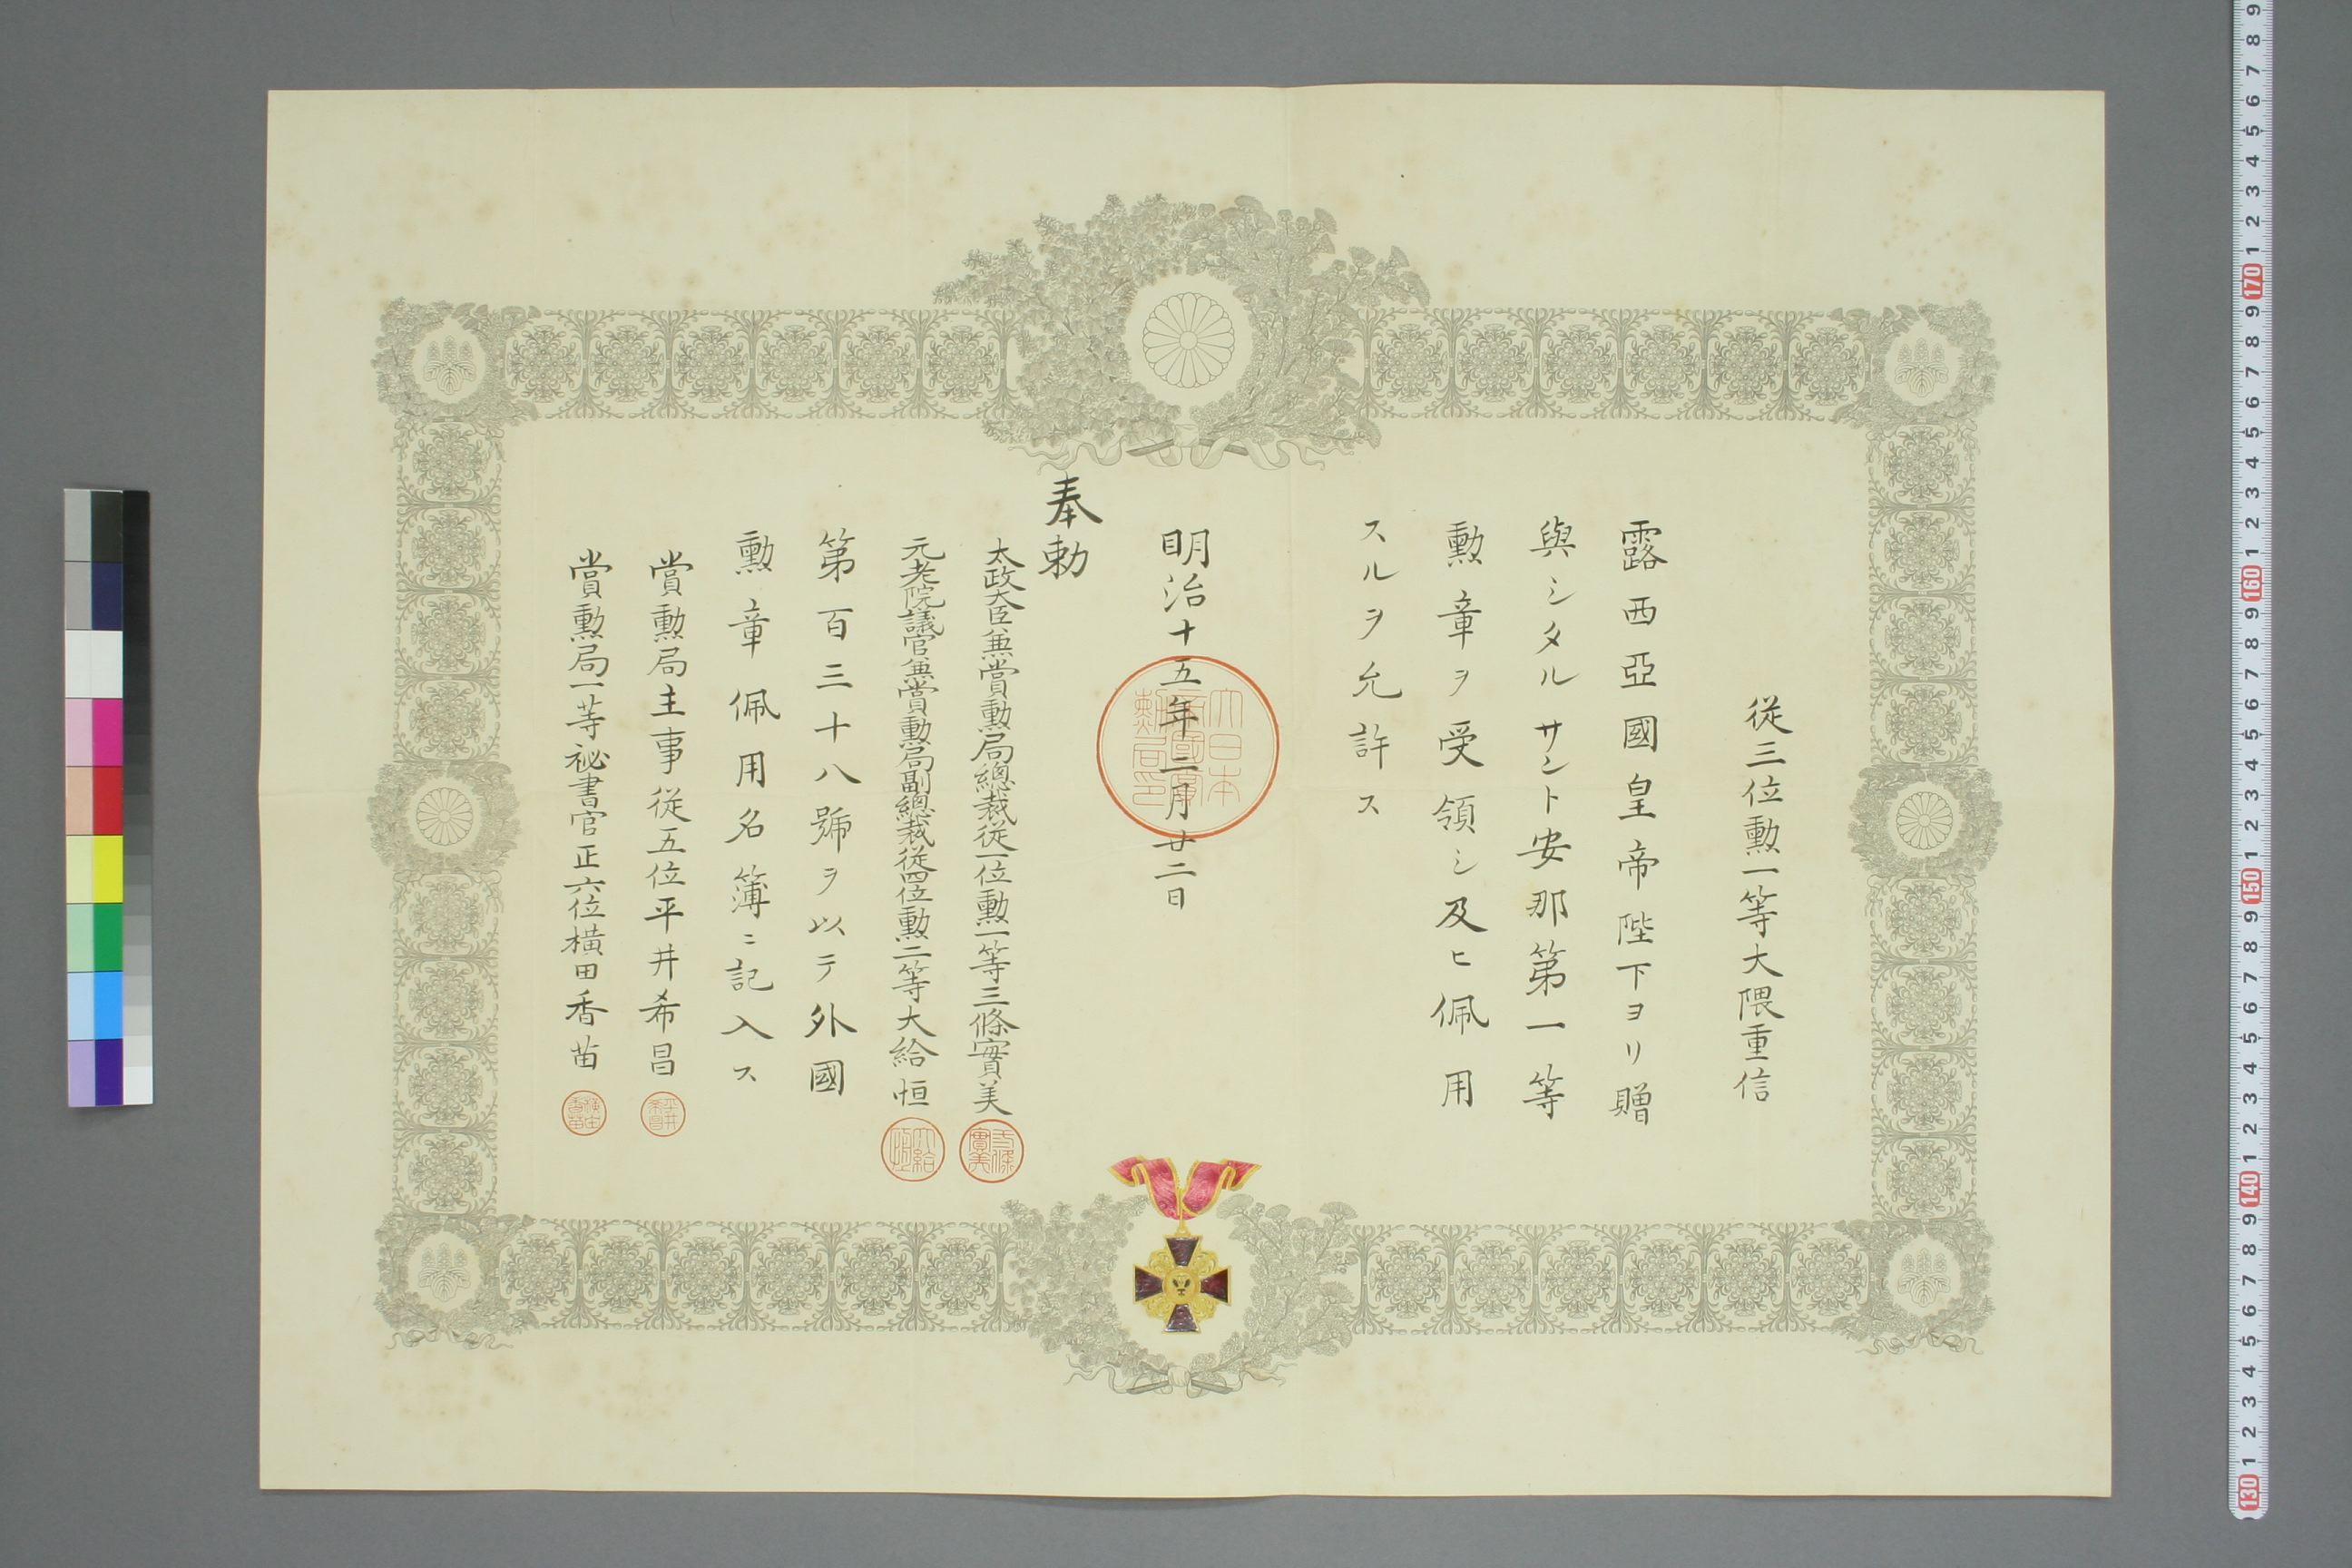 從三位勲一等大隈重信
露西亞國皇帝陛下ヨリ贈
與シタルサント安那第一等
勲章ヲ受領シ及ヒ佩用
スルヲ允許ス
明治十五年三月廿二日
奉勅
太政大臣兼賞勲局總裁從一位勲一等三條實美
元老院議官兼賞勲局副總裁從四位勲二等大給恒
第百三十八號ヲ以テ外國
勲章佩用名簿ニ記入ス
賞勲局主事從五位平井希昌
賞勲局一等祕書官正六位横田香苗